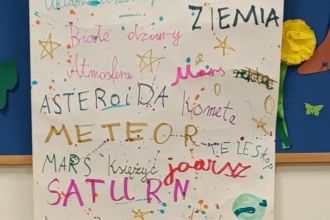 ZIEMIA
Białe dziury
Atmosfera Mars
ASTEROIDA Kometa
METEOR
TELESKOP
MARS Księżyc jaarsz
SATURN